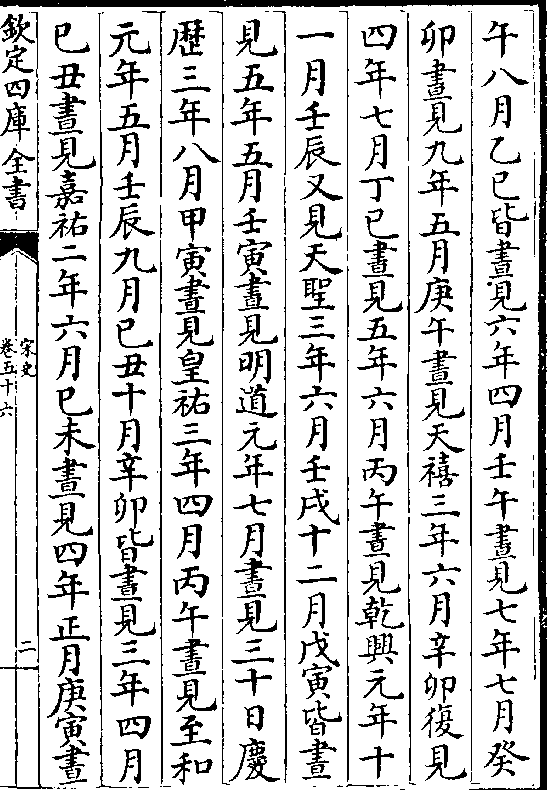 午八月乙巳皆晝見六年四月壬午晝見七年七月癸
卯晝見九年五月庚午晝見天禧三年六月辛卯復見
四年七月丁巳晝見五年六月丙午晝見乾興元年十
一月壬辰又見天聖三年六月壬戌十二月戊寅皆晝
見五年五月壬寅晝見明道元年七月晝見三十日慶
歴三年八月甲寅晝見皇祐三年四月丙午晝見至和
元年五月壬辰九月己丑十月辛卯皆晝見三年四月
己丑晝見嘉祐二年六月己未晝見四年正月庚寅晝
欽定四庫全書
宋史
卷五十六
二